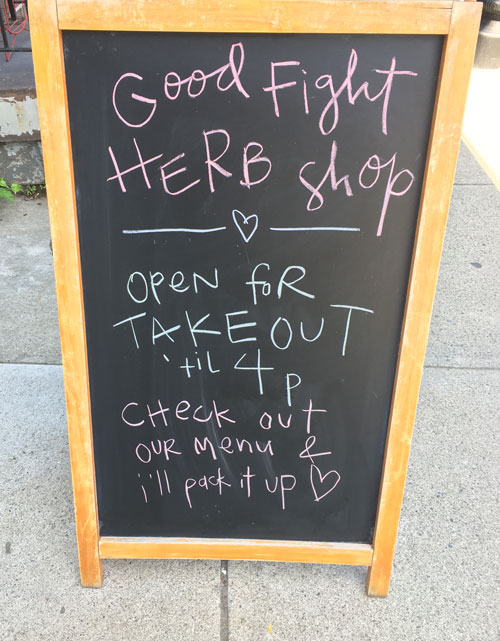 Good Fight
HERB shop
OPEN foR
TAKEOUT
'til 4p
CHeck out
OUR Menu &
i'll pack it up